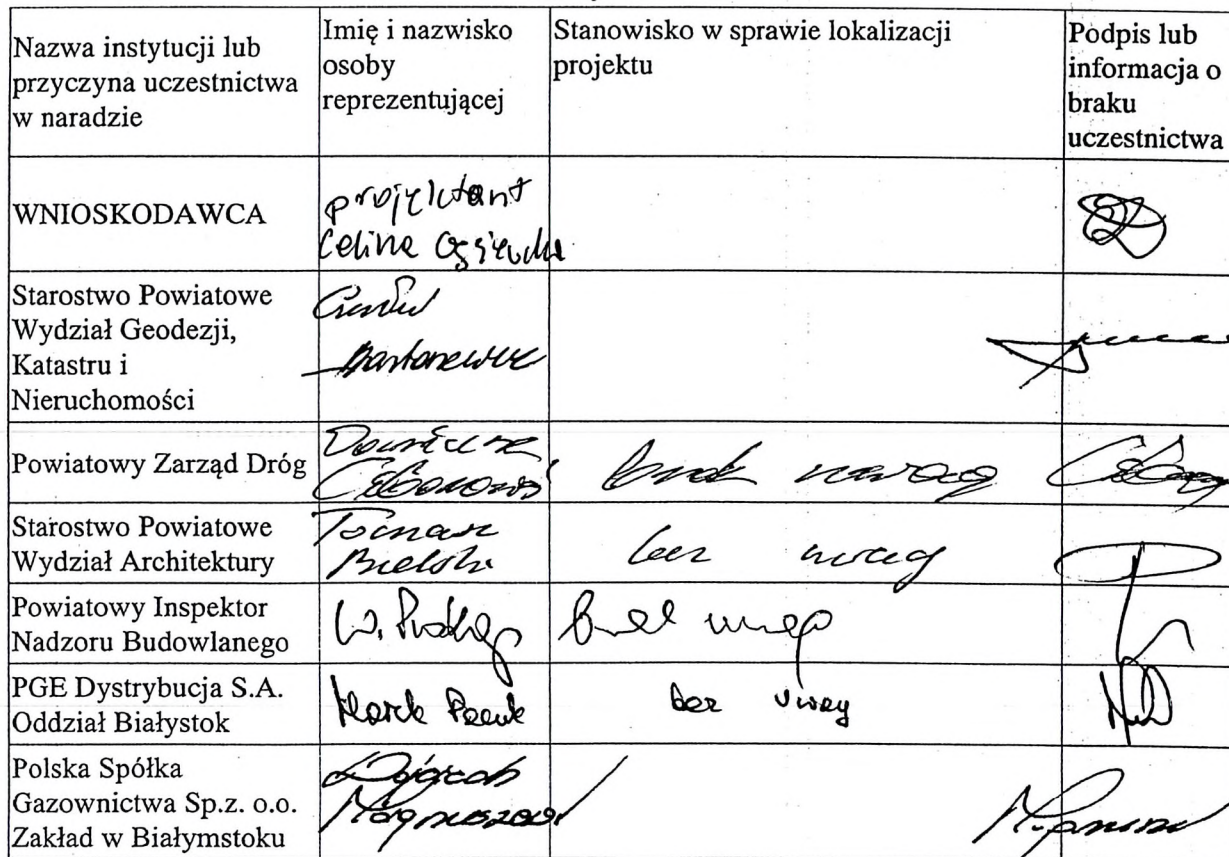 Nazwa instytucji lub
przyczyna uczestnictwa
w naradzie
Imię i nazwisko
osoby
reprezentującej
Stanowisko w sprawie lokalizacji
projektu
Podpis lub
informacja o
braku
uczestnictwa
WNIOSKODAWCA
projektant
Celina
Starostwo Powiatowe
Wydział Geodezji,
Katastru i
Nieruchomości
Powiatowy Zarząd Dróg
brak uwag
Starostwo Powiatowe
Wydział Architektury
Tomasz
Bielski
bez uwag
Powiatowy Inspektor
Nadzoru Budowlanego
W.
brak uwag
PGE Dystrybucja S.A.
Oddział Białystok
Marek
bez uwag
Polska Spółka
Gazownictwa Sp.z. o.o.
Zakład w Białymstoku
Wojciech